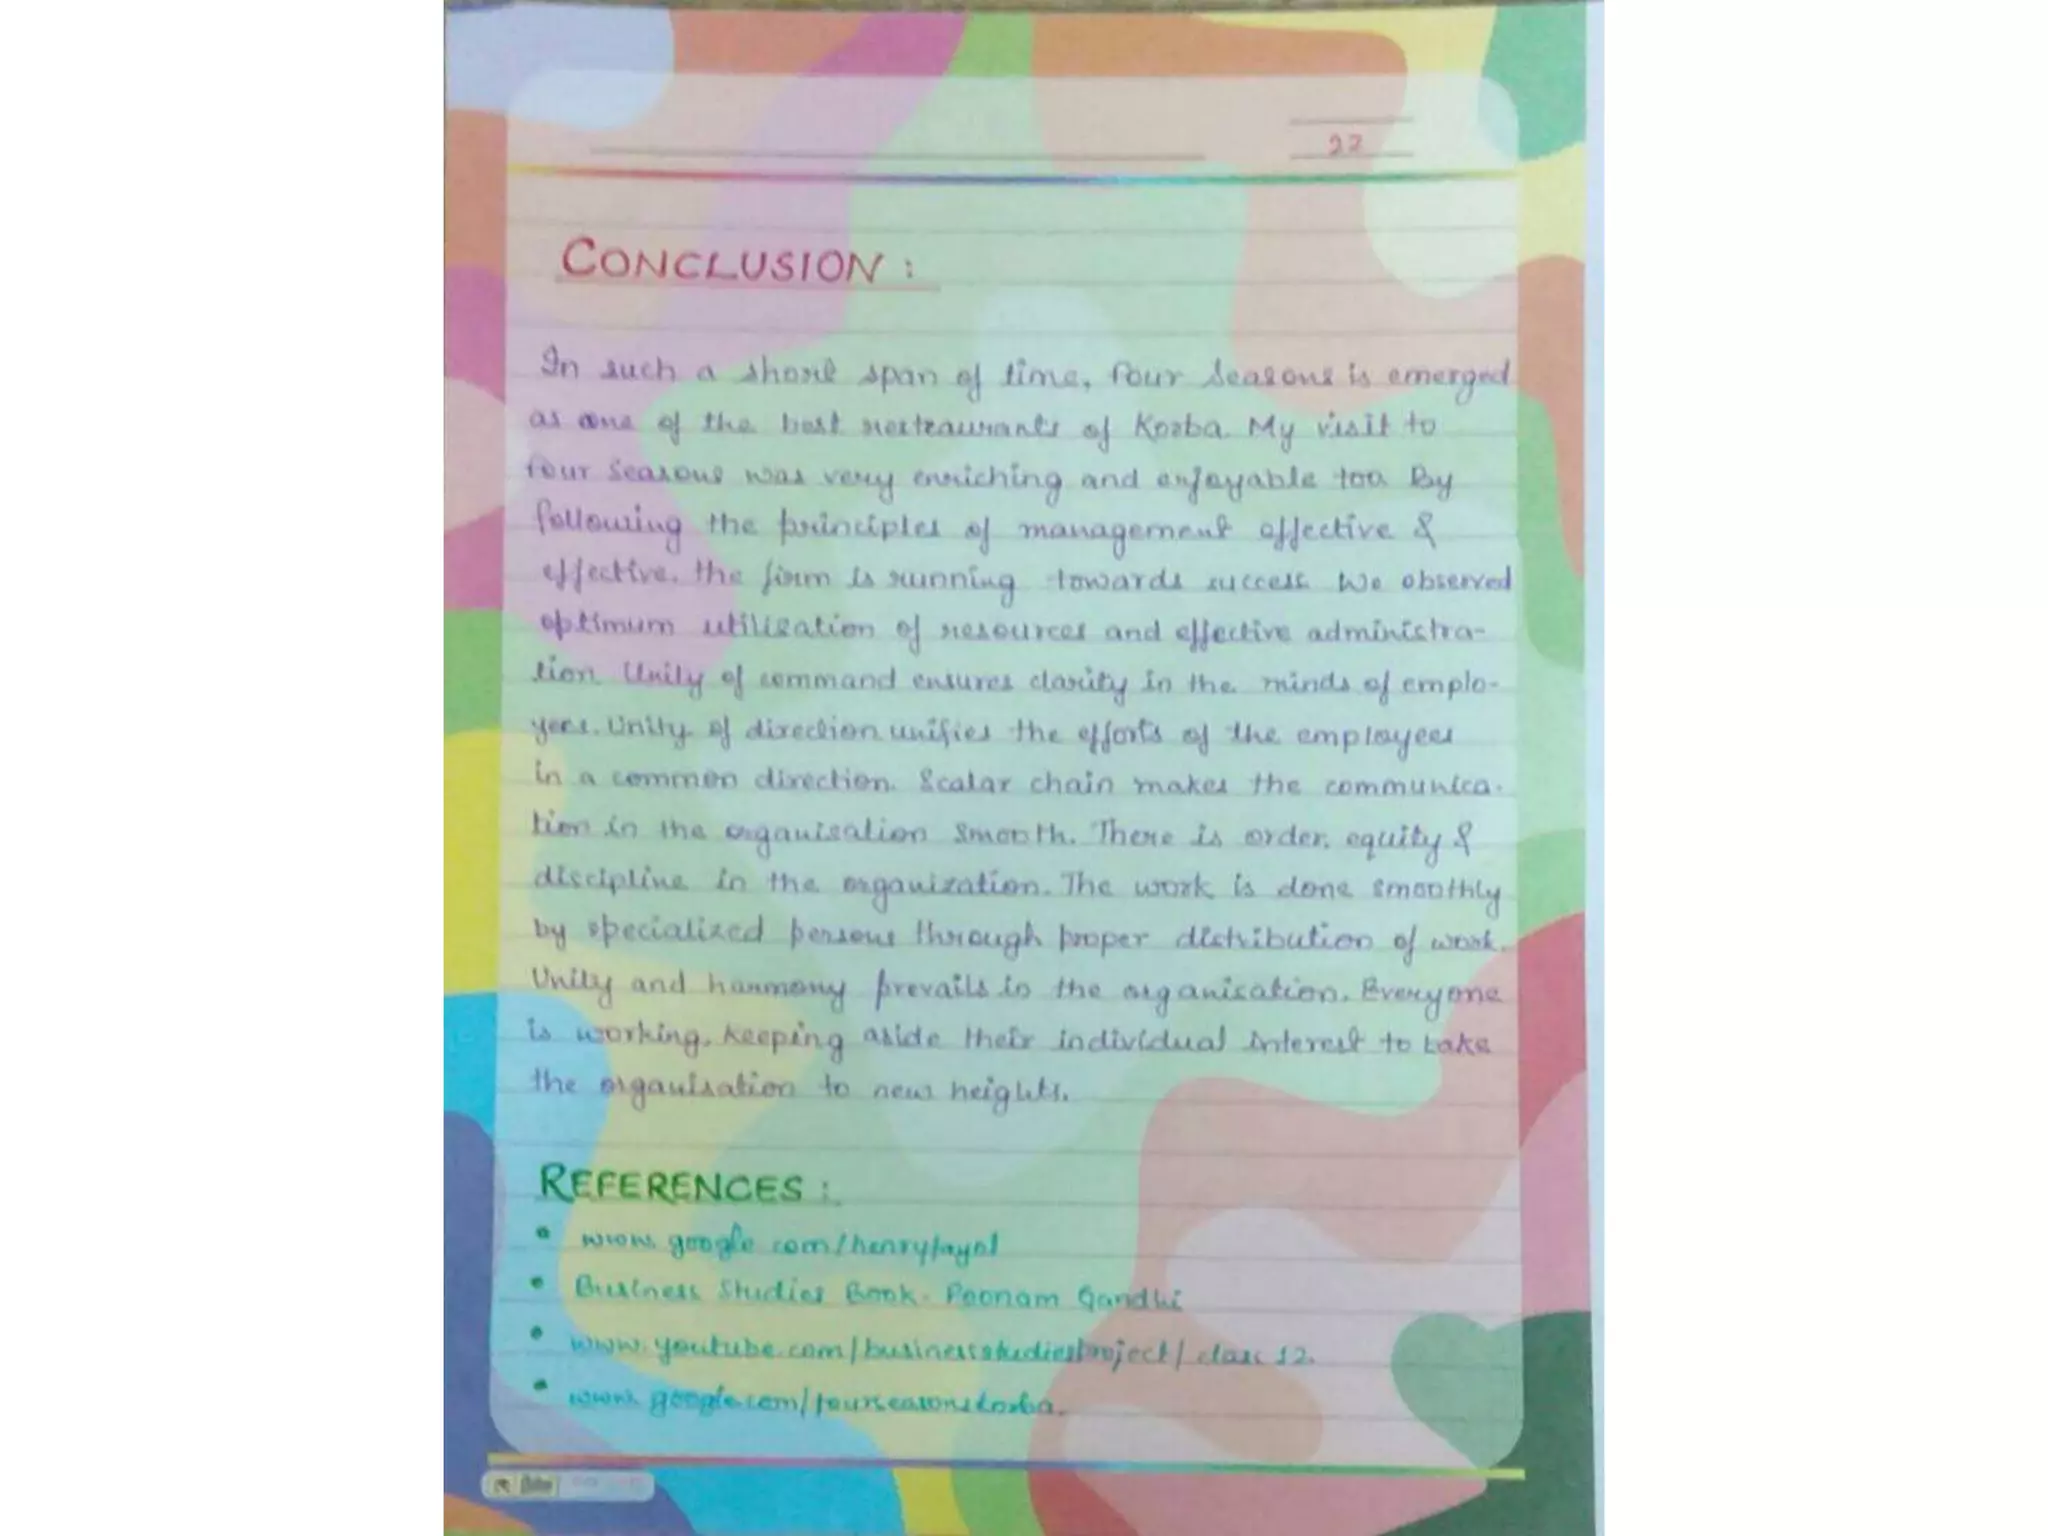 22
CONCLUSION :
In such a short span of time, Four Seasons is emerged
as one of the best restraurants of Korba. My visit to
Four Seasons was very enriching and enjoyable too. By
following the principles of management effective &
effective. the firm is running towards success. We observed
optimum utilization of resources and effective administra-
tion. Unity of command ensures clarity in the minds of emplo-
yees. Unity of direction unifies the efforts of the employees
in a common direction. Scalar chain makes the communica-
tion in the organisation smooth. There is order, equity &
discipline in the organization. The work is done smoothly
by specialized persons through proper distribution of work.
Unity and harmony prevails in the organisation. Everyone
is working, keeping aside their individual interest to take
the organisation to new heights.
REFERENCES :
• www.google.com/henryfayol
• Business Studies Book- Poonam Gandhi
• www.youtube.com/businessstudiesproject/class 12.
• www.google.com/fourseasonskorba.